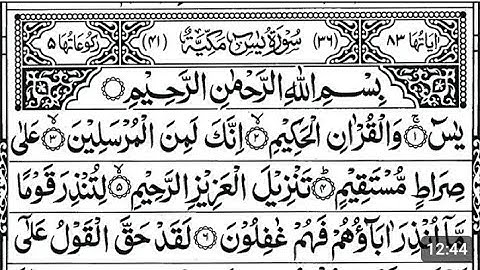 اٰیَاتُهَا ٨٣ (٣٦) سُوْرَةُ یٰسٓ مَكِّیَّةٌ (٤١) رُكُوْعَاتُهَا ٥
بِسْمِ اللّٰهِ الرَّحْمٰنِ الرَّحِیْمِ
یٰسٓ ۚ ١ وَالْقُرْاٰنِ الْحَكِیْمِ ۙ ٢ اِنَّكَ لَمِنَ الْمُرْسَلِیْنَ ۙ ٣ عَلٰی
صِرَاطٍ مُّسْتَقِیْمٍ ؕ ٤ تَنْزِیْلَ الْعَزِیْزِ الرَّحِیْمِ ۙ ٥ لِتُنْذِرَ قَوْمًا
مَّاۤ اُنْذِرَ اٰبَآؤُهُمْ فَهُمْ غٰفِلُوْنَ ٦ لَقَدْ حَقَّ الْقَوْلُ عَلٰۤی
12:44